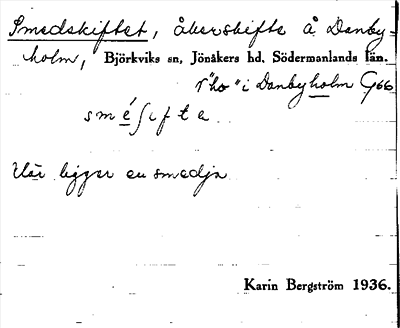 Smedskiftet, åkerskifte å Danby-
holm, Björkviks sn, Jönåkers hd, Södermanlands län.
"ho" i Danbyholm G66
smé∫ifte
Där ligger en smedja
Karin Bergström 1936.